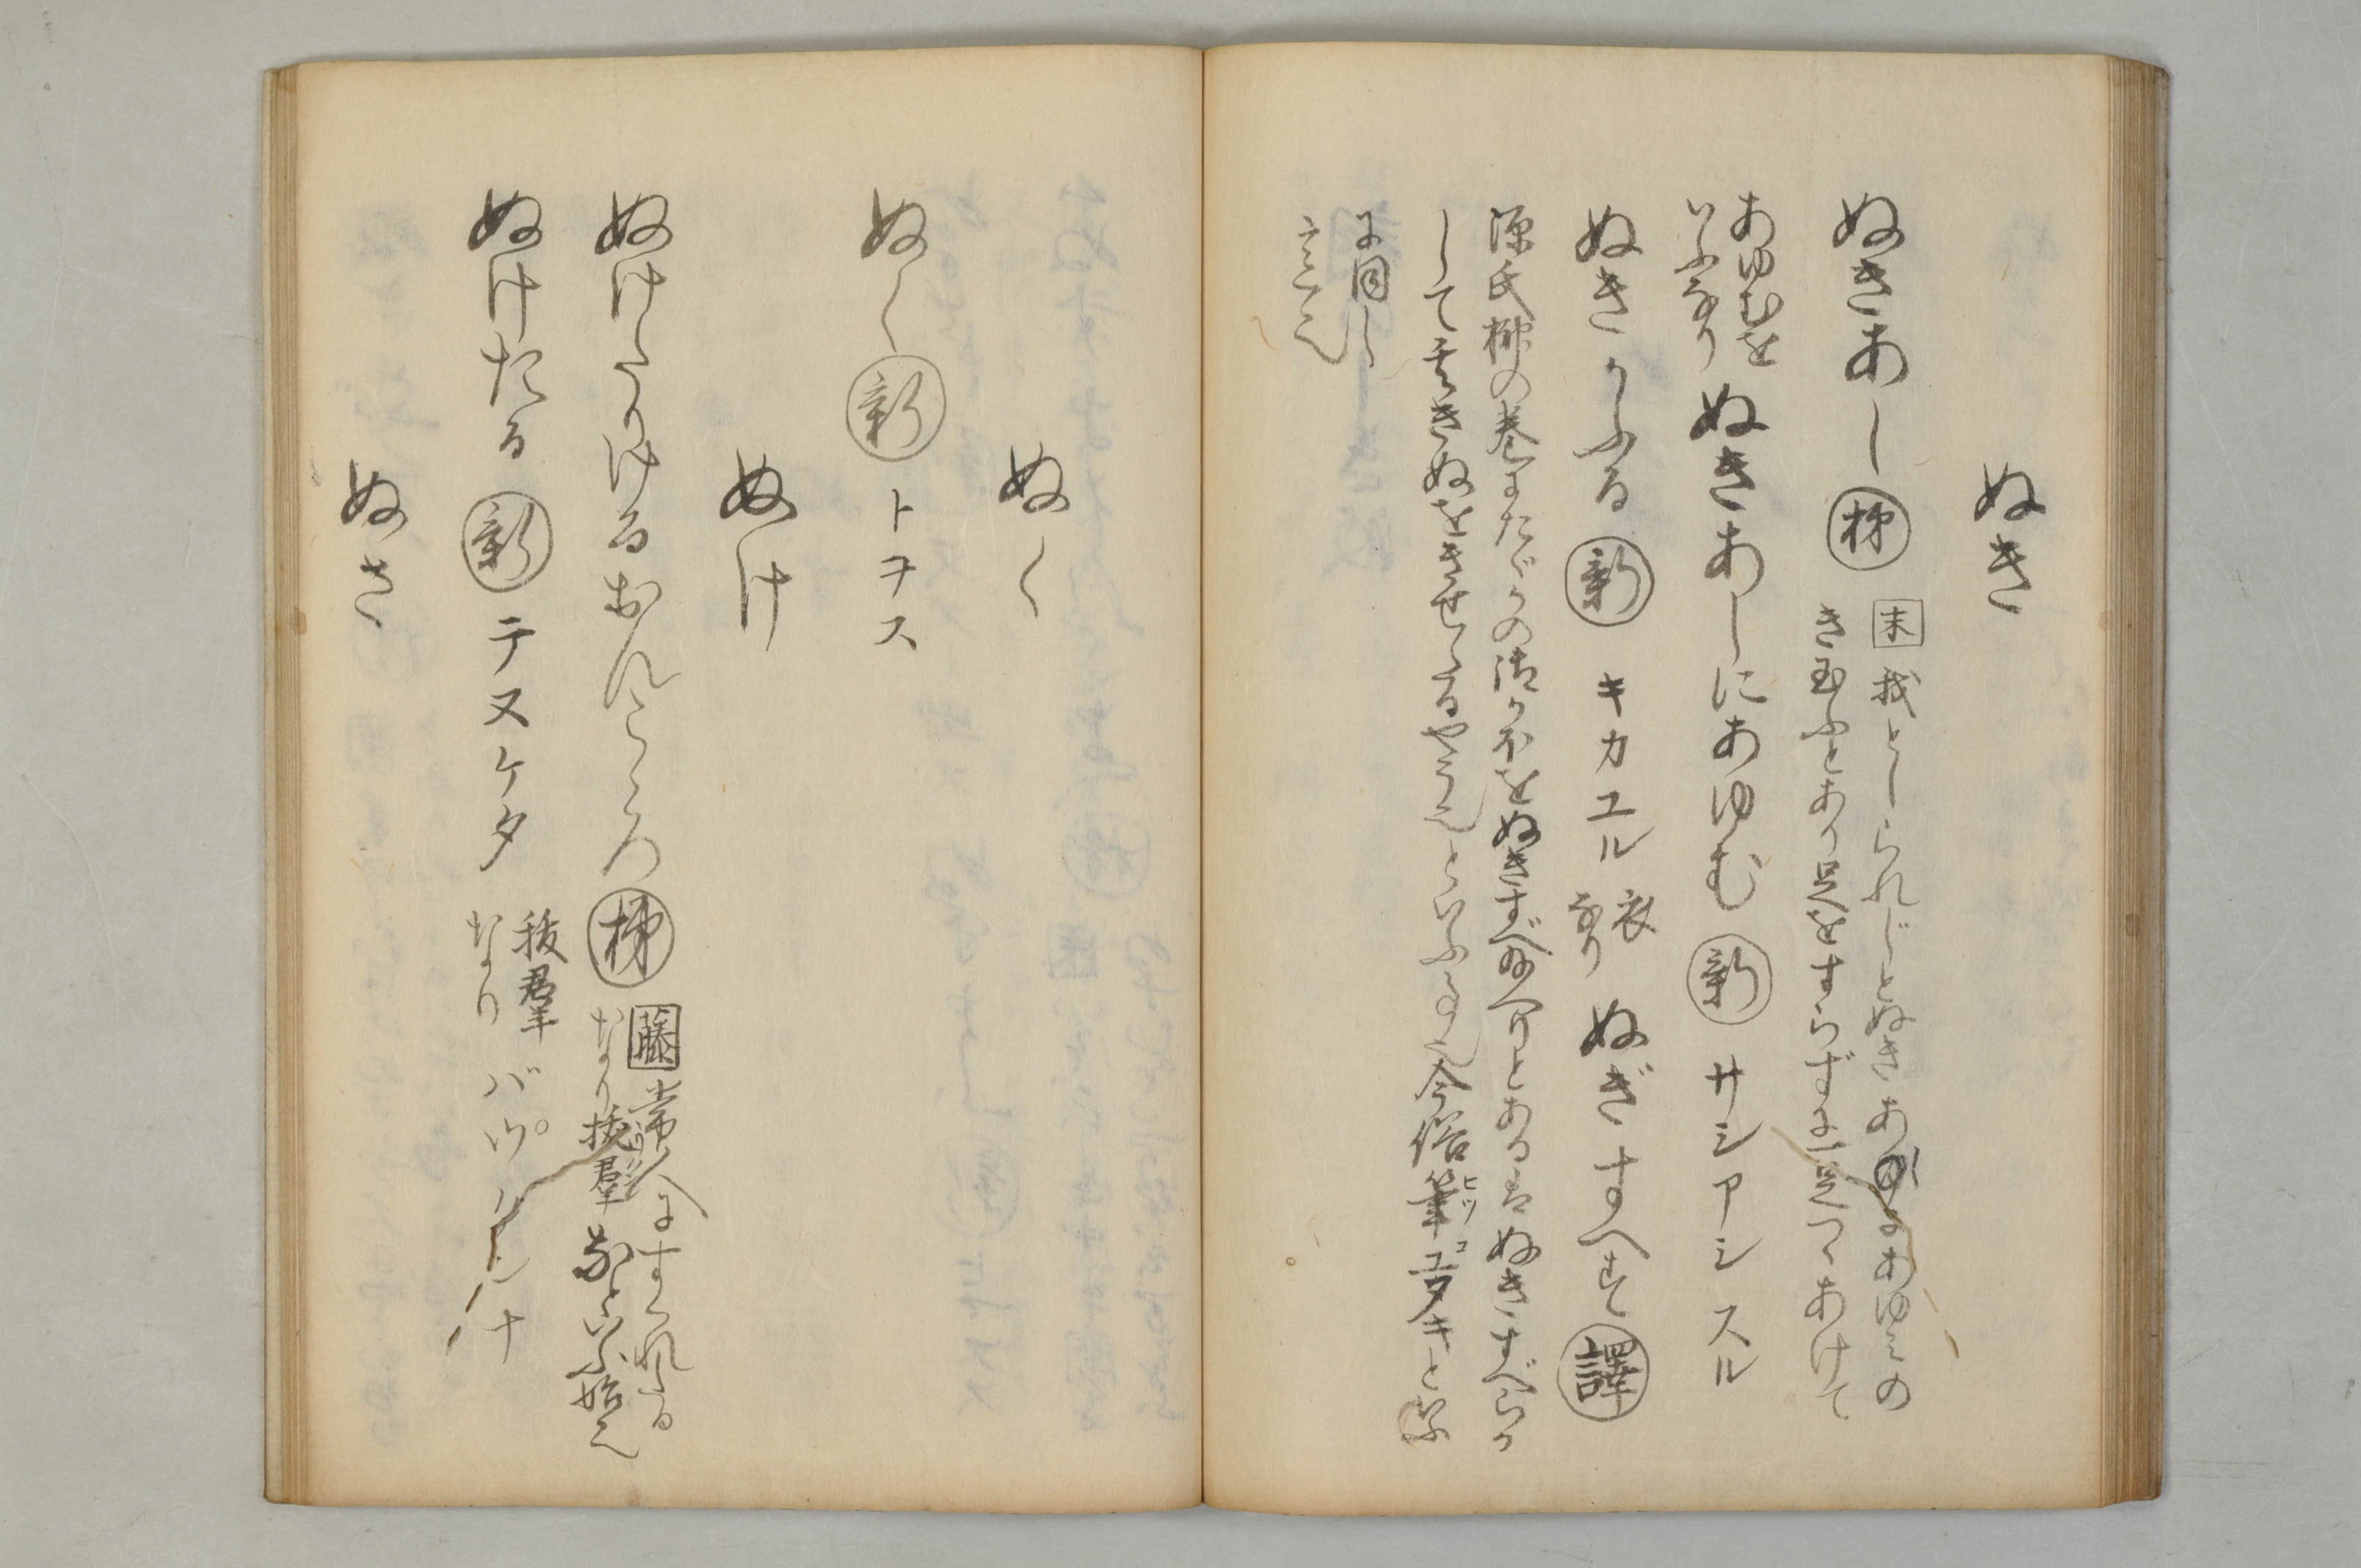 ぬき
ぬきあし 梯 末 我としられじとぬきあしにあゆみの
き玉ふとあり足をすらずに一足つゝあけて
あゆむを
いふなり
ぬきあしにあゆむ 新 サシアシスル
ぬきかふる 新 キカエル 衣
なり
ぬぎすへす 譯
源氏 の巻に の をぬきすべ へりとあるはぬきすべらか
して きぬをきせたるやう也といふ 也今俗筆ヒツコユタキといふ
に同し
言也
ぬく
ぬく 新 トヲス
ぬけ
ぬけたりける おんこゝろ 梯 藤 常人にすくれたる
なり抜群 といふ始也
ぬけたる 新 テヌケタ 抜群
なり
バツグンナ
ぬさ